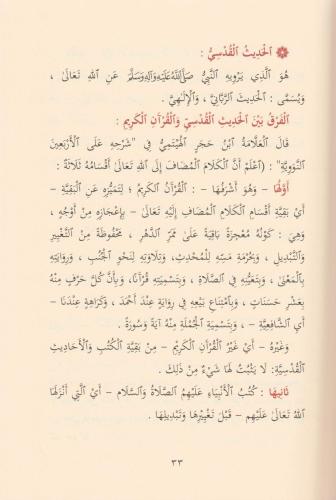 ❁ الْحَدِيثُ الْقُدْسِيُّ :
هُوَ الَّذِي يَرْوِيهِ النَّبِيُّ صَلَّى اللَّهُ عَلَيْهِ وَآلِهِ وَسَلَّمَ عَنِ اللهِ تَعَالَى ،
وَيُسَمَّى : الْحَدِيثَ الرَّبَّانِيَّ ، وَالْإِلٰهِيَّ .
الْفَرْقُ بَيْنَ الْحَدِيثِ الْقُدْسِيِّ وَالْقُرْآنِ الْكَرِيمِ :
قَالَ الْعَلَّامَةُ ابْنُ حَجَرٍ الْهَيْتَمِيُّ فِي "شَرْحِهِ عَلَى الْأَرْبَعِينَ
النَّوَوِيَّةِ" : (اعْلَمْ أَنَّ الْكَلَامَ الْمُضَافَ إِلَى اللهِ تَعَالَى أَقْسَامُهُ ثَلَاثَةٌ :
أَوَّلُهَا – وَهُوَ أَشْرَفُهَا – : الْقُرْآنُ الْكَرِيمُ ؛ لِتَمَيُّزِهِ عَنِ الْبَقِيَّةِ –
أَيْ بَقِيَّةِ أَقْسَامِ الْكَلَامِ الْمُضَافِ إِلَيْهِ تَعَالَى – بِإِعْجَازِهِ مِنْ أَوْجُهٍ ،
وَهِيَ : كَوْنُهُ مُعْجِزَةً بَاقِيَةً عَلَى مَمَرِّ الدَّهْرِ ، مَحْفُوظَةً مِنْ التَّغْيِيرِ
وَالتَّبْدِيلِ ، وَبِحُرْمَةِ مَسِّهِ لِلْمُحْدِثِ، وَتِلَاوَتِهِ لِنَحْوِ الْجُنُبِ ، وَرِوَايَتِهِ
بِالْمَعْنَى، وَبِتَعَيُّنِهِ فِي الصَّلَاةِ ، وَبِتَسْمِيَتِهِ قُرْآنًا، وَبِأَنَّ كُلَّ حَرْفٍ مِنْهُ
بِعَشْرِ حَسَنَاتٍ ، وَبِامْتِنَاعِ بَيْعِهِ فِي رِوَايَةٍ عِنْدَ أَحْمَدَ ، وَكَرَاهَةٍ عِنْدَنَا –
أَيِ الشَّافِعِيَّةِ – ، وَبِتَسْمِيَةِ الْجُمْلَةِ مِنْهُ آيَةً وَسُورَةً .
وَغَيْرُهُ – أَيْ غَيْرُ الْقُرْآنِ الْكَرِيمِ – مِنْ بَقِيَّةِ الْكُتُبِ وَالْأَحَادِيثِ
الْقُدْسِيَّةِ: لَا يَثْبُتُ لَهَا شَيْءٌ مِنْ ذٰلِكَ .
ثَانِيهَا : كُتُبُ الْأَنْبِيَاءِ عَلَيْهِمُ الصَّلَاةُ وَالسَّلَامُ – أَيِ الَّتِي أَنْزَلَهَا
اللهُ تَعَالَى عَلَيْهِم – قَبْلَ تَغْيِيرِهَا وَتَبْدِيلِهَا .
٣٣